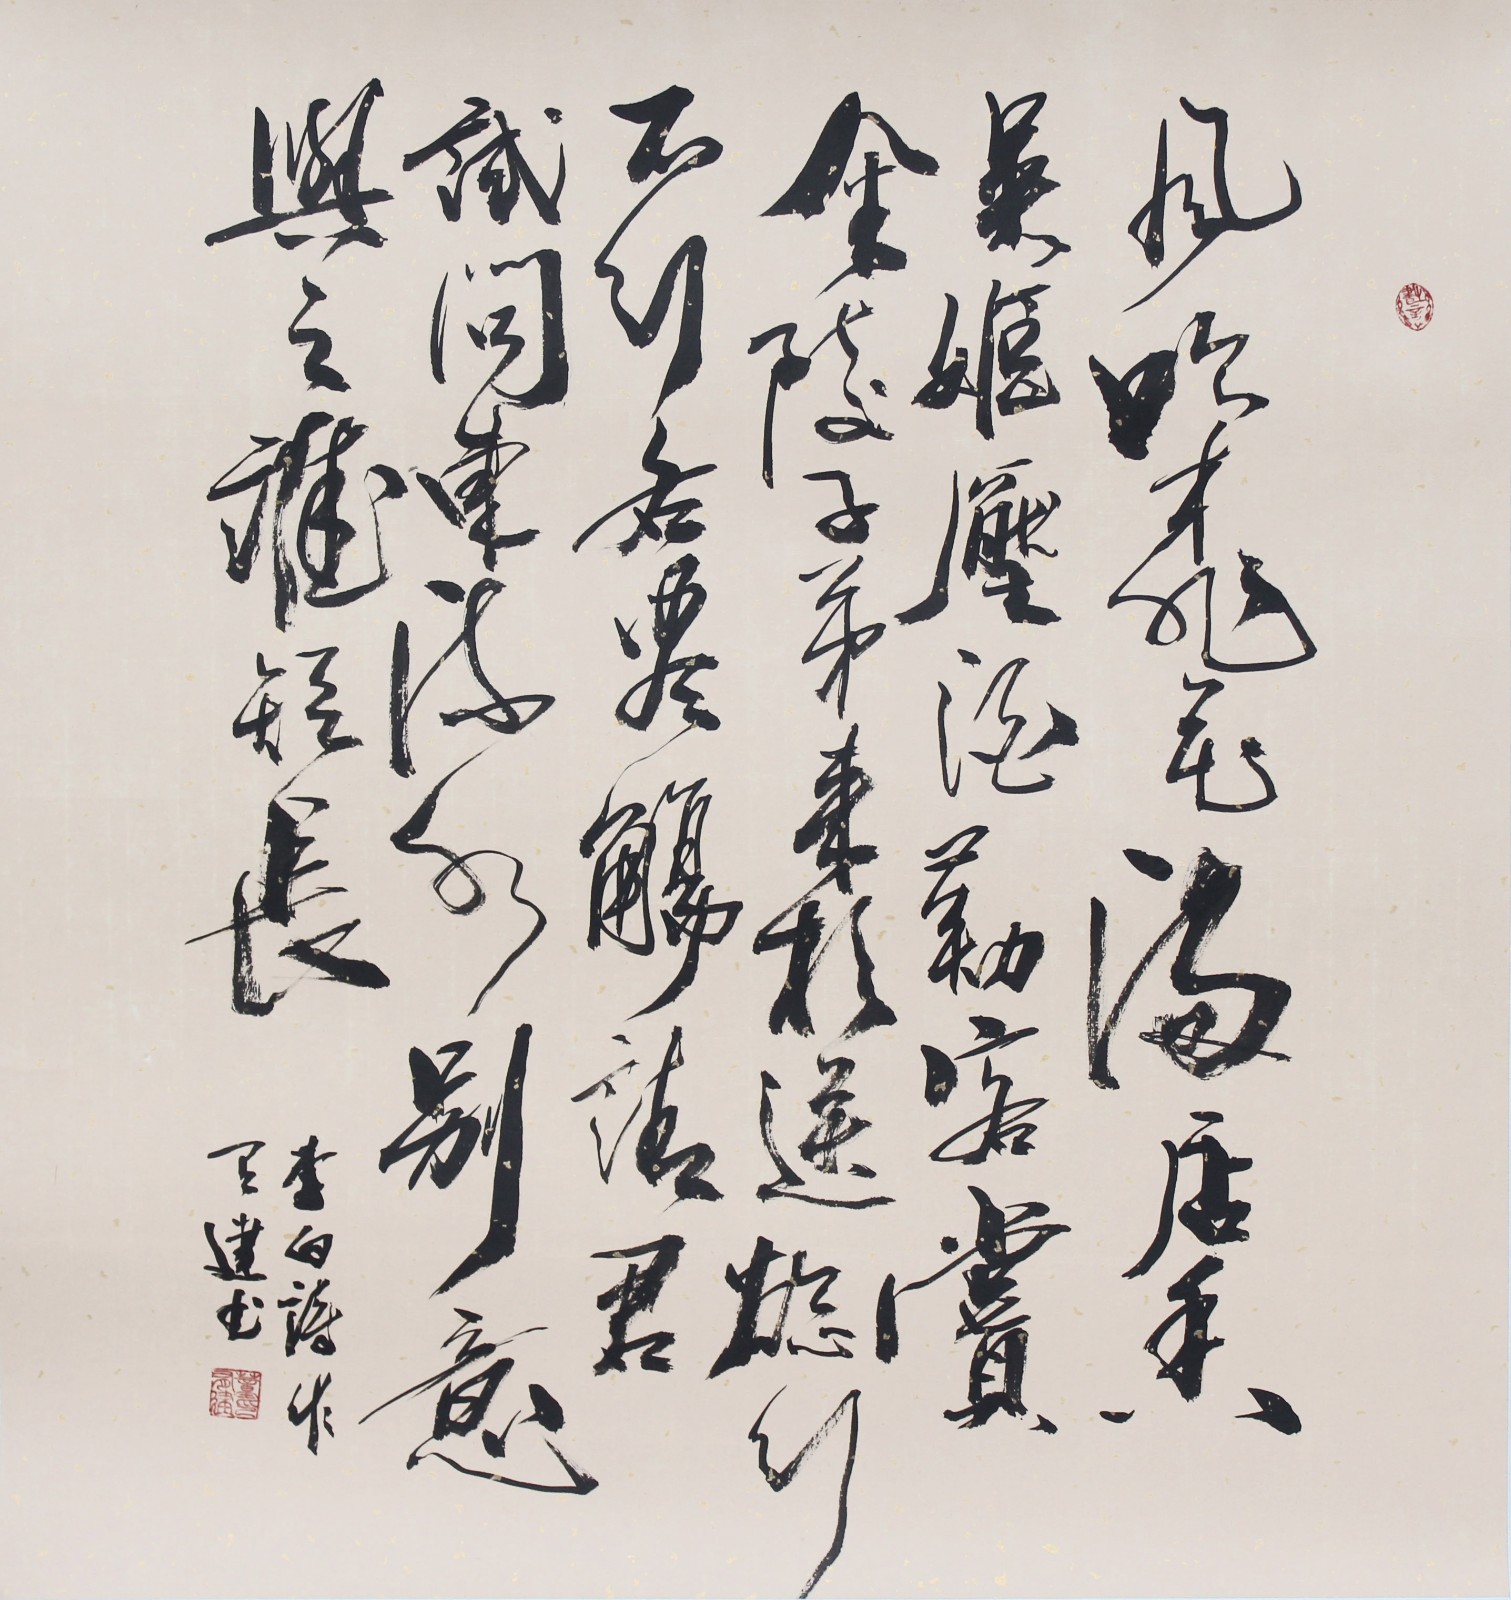 風吹柳花滿店香
吳姬壓酒勸客嘗
金陵子弟來相送慾行
不行各盡觴請君
試問東流水別意
與之誰短長
李白詩作
天建书